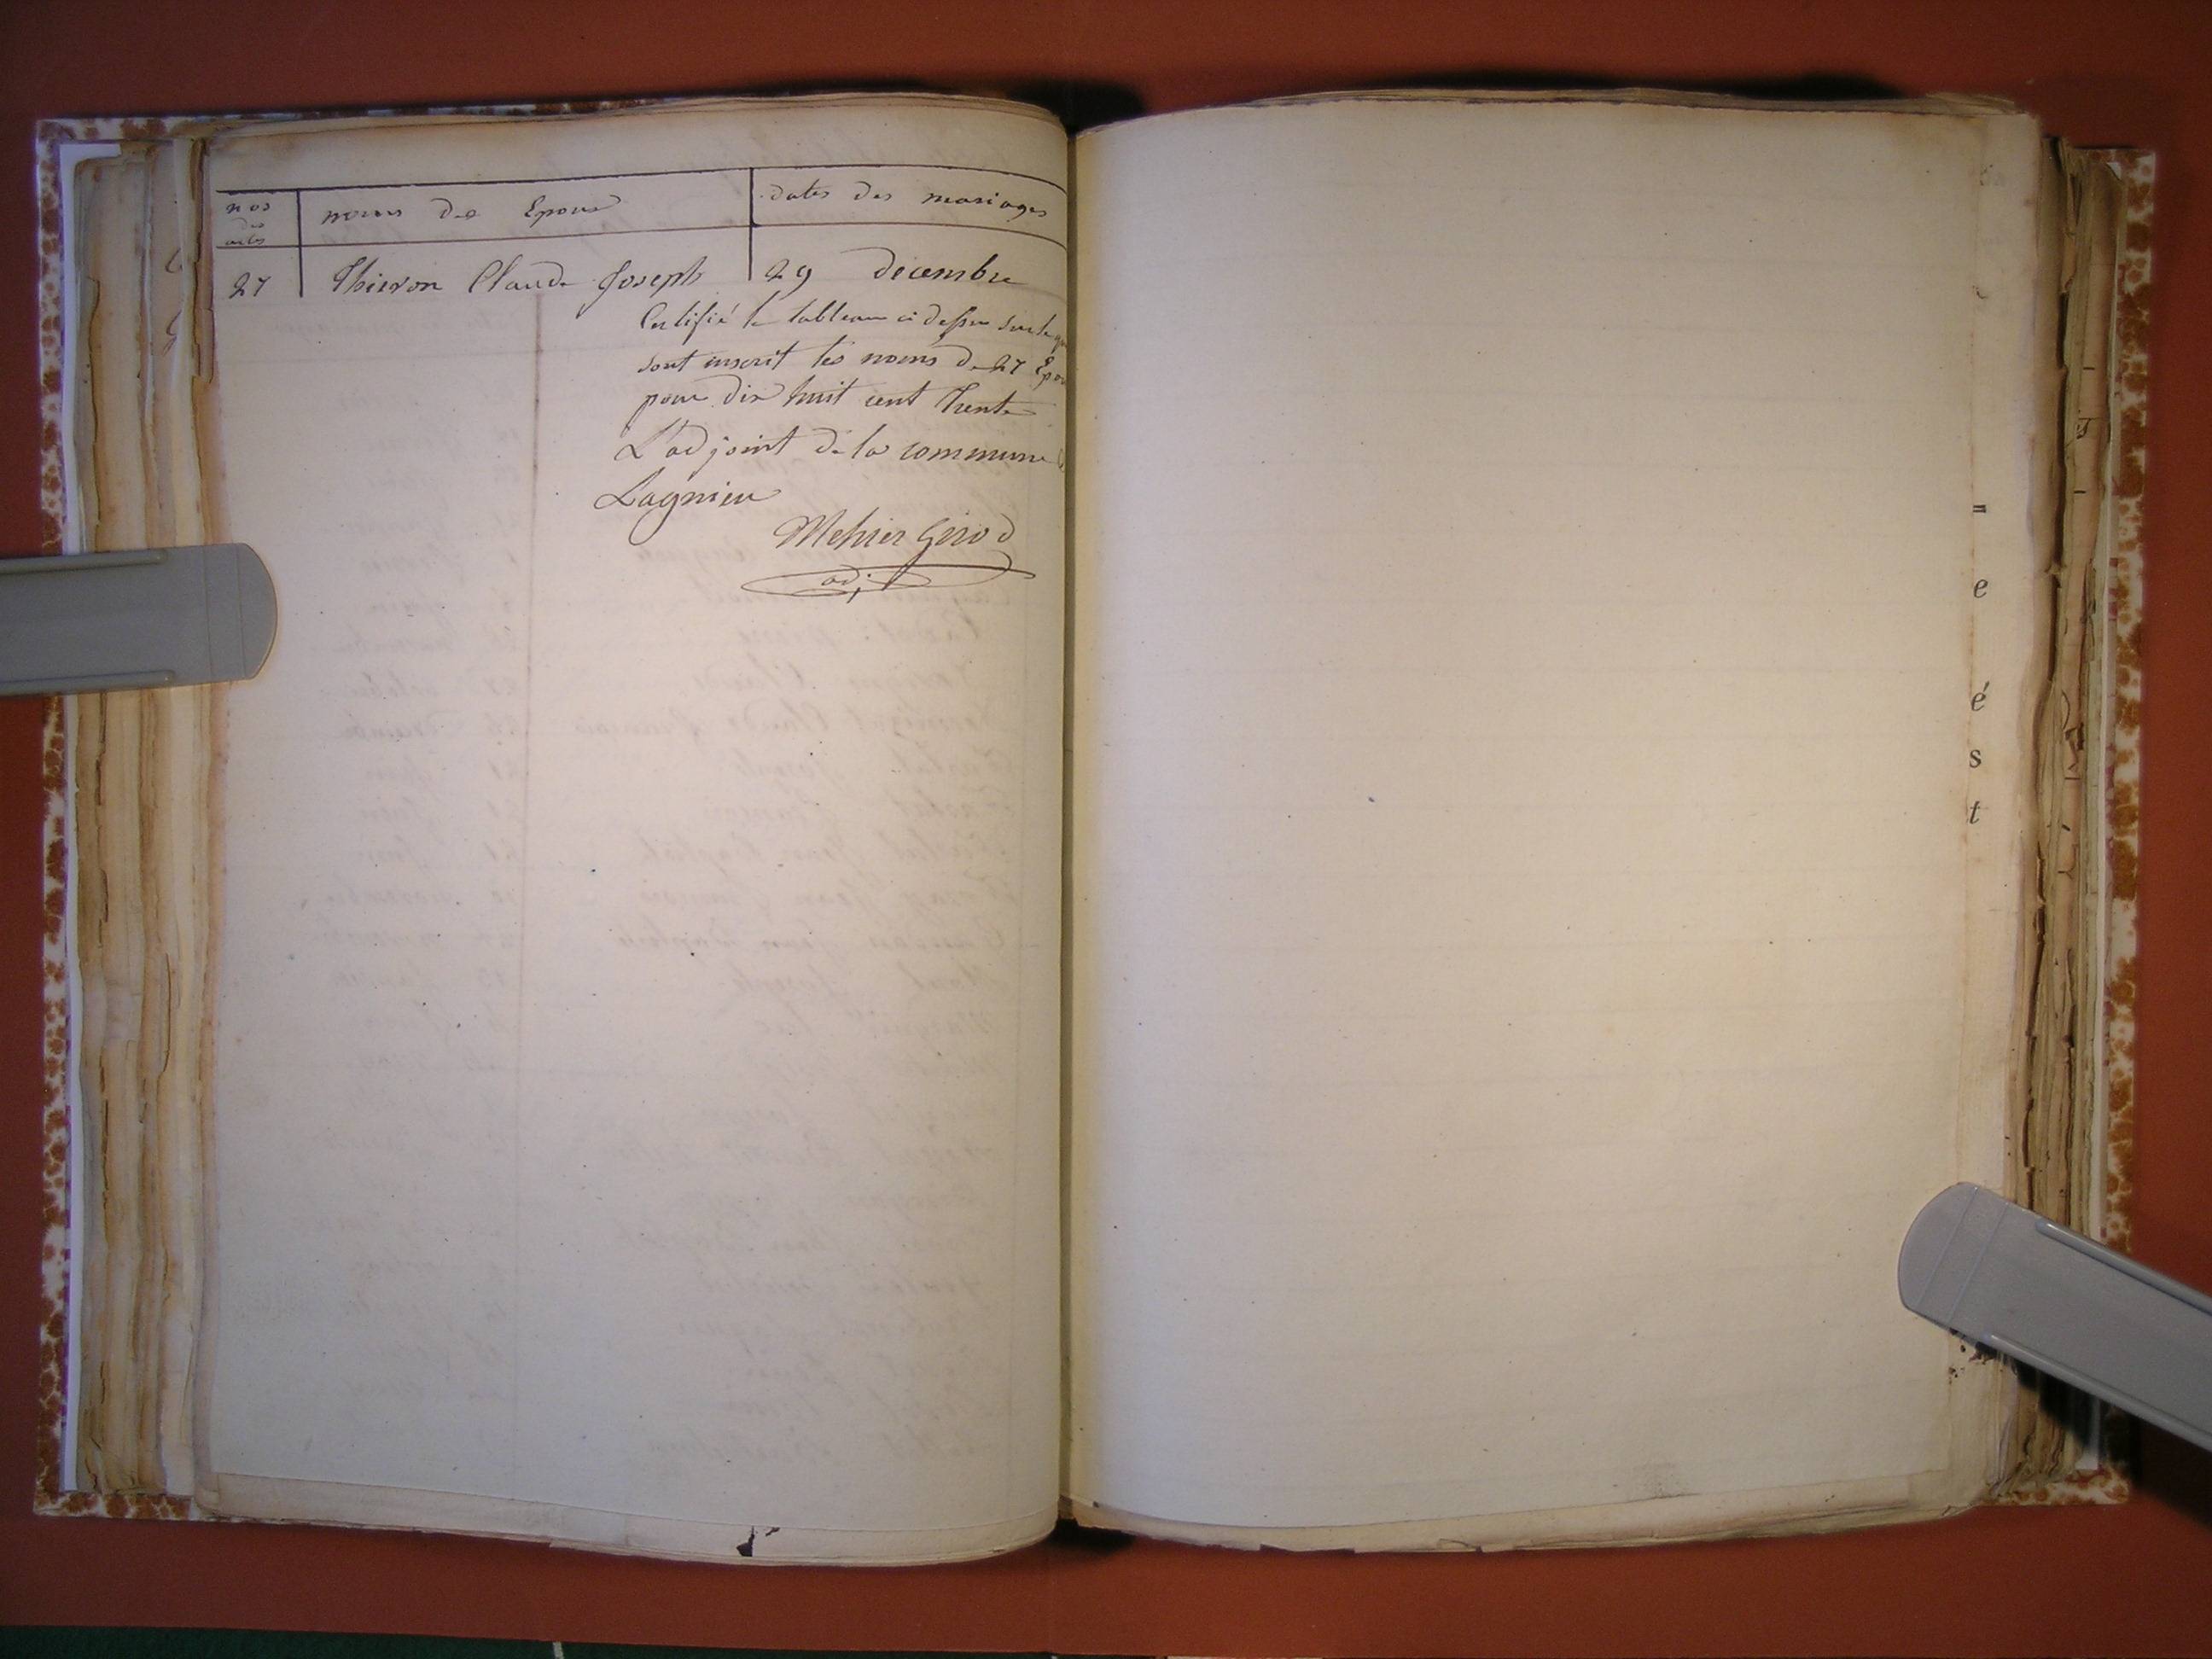 nos des actes | noms des Epoux | dates des mariages
27 | Thievon Claude Joseph | 29 décembre
Certifié le tableau ci dessus sur le
sont inscrit les noms de 27 Epou
pour dix huit cent trente
L'adjoint de la commune
Lagnieu
Mehier Girod
adj
=
e
é
s
t